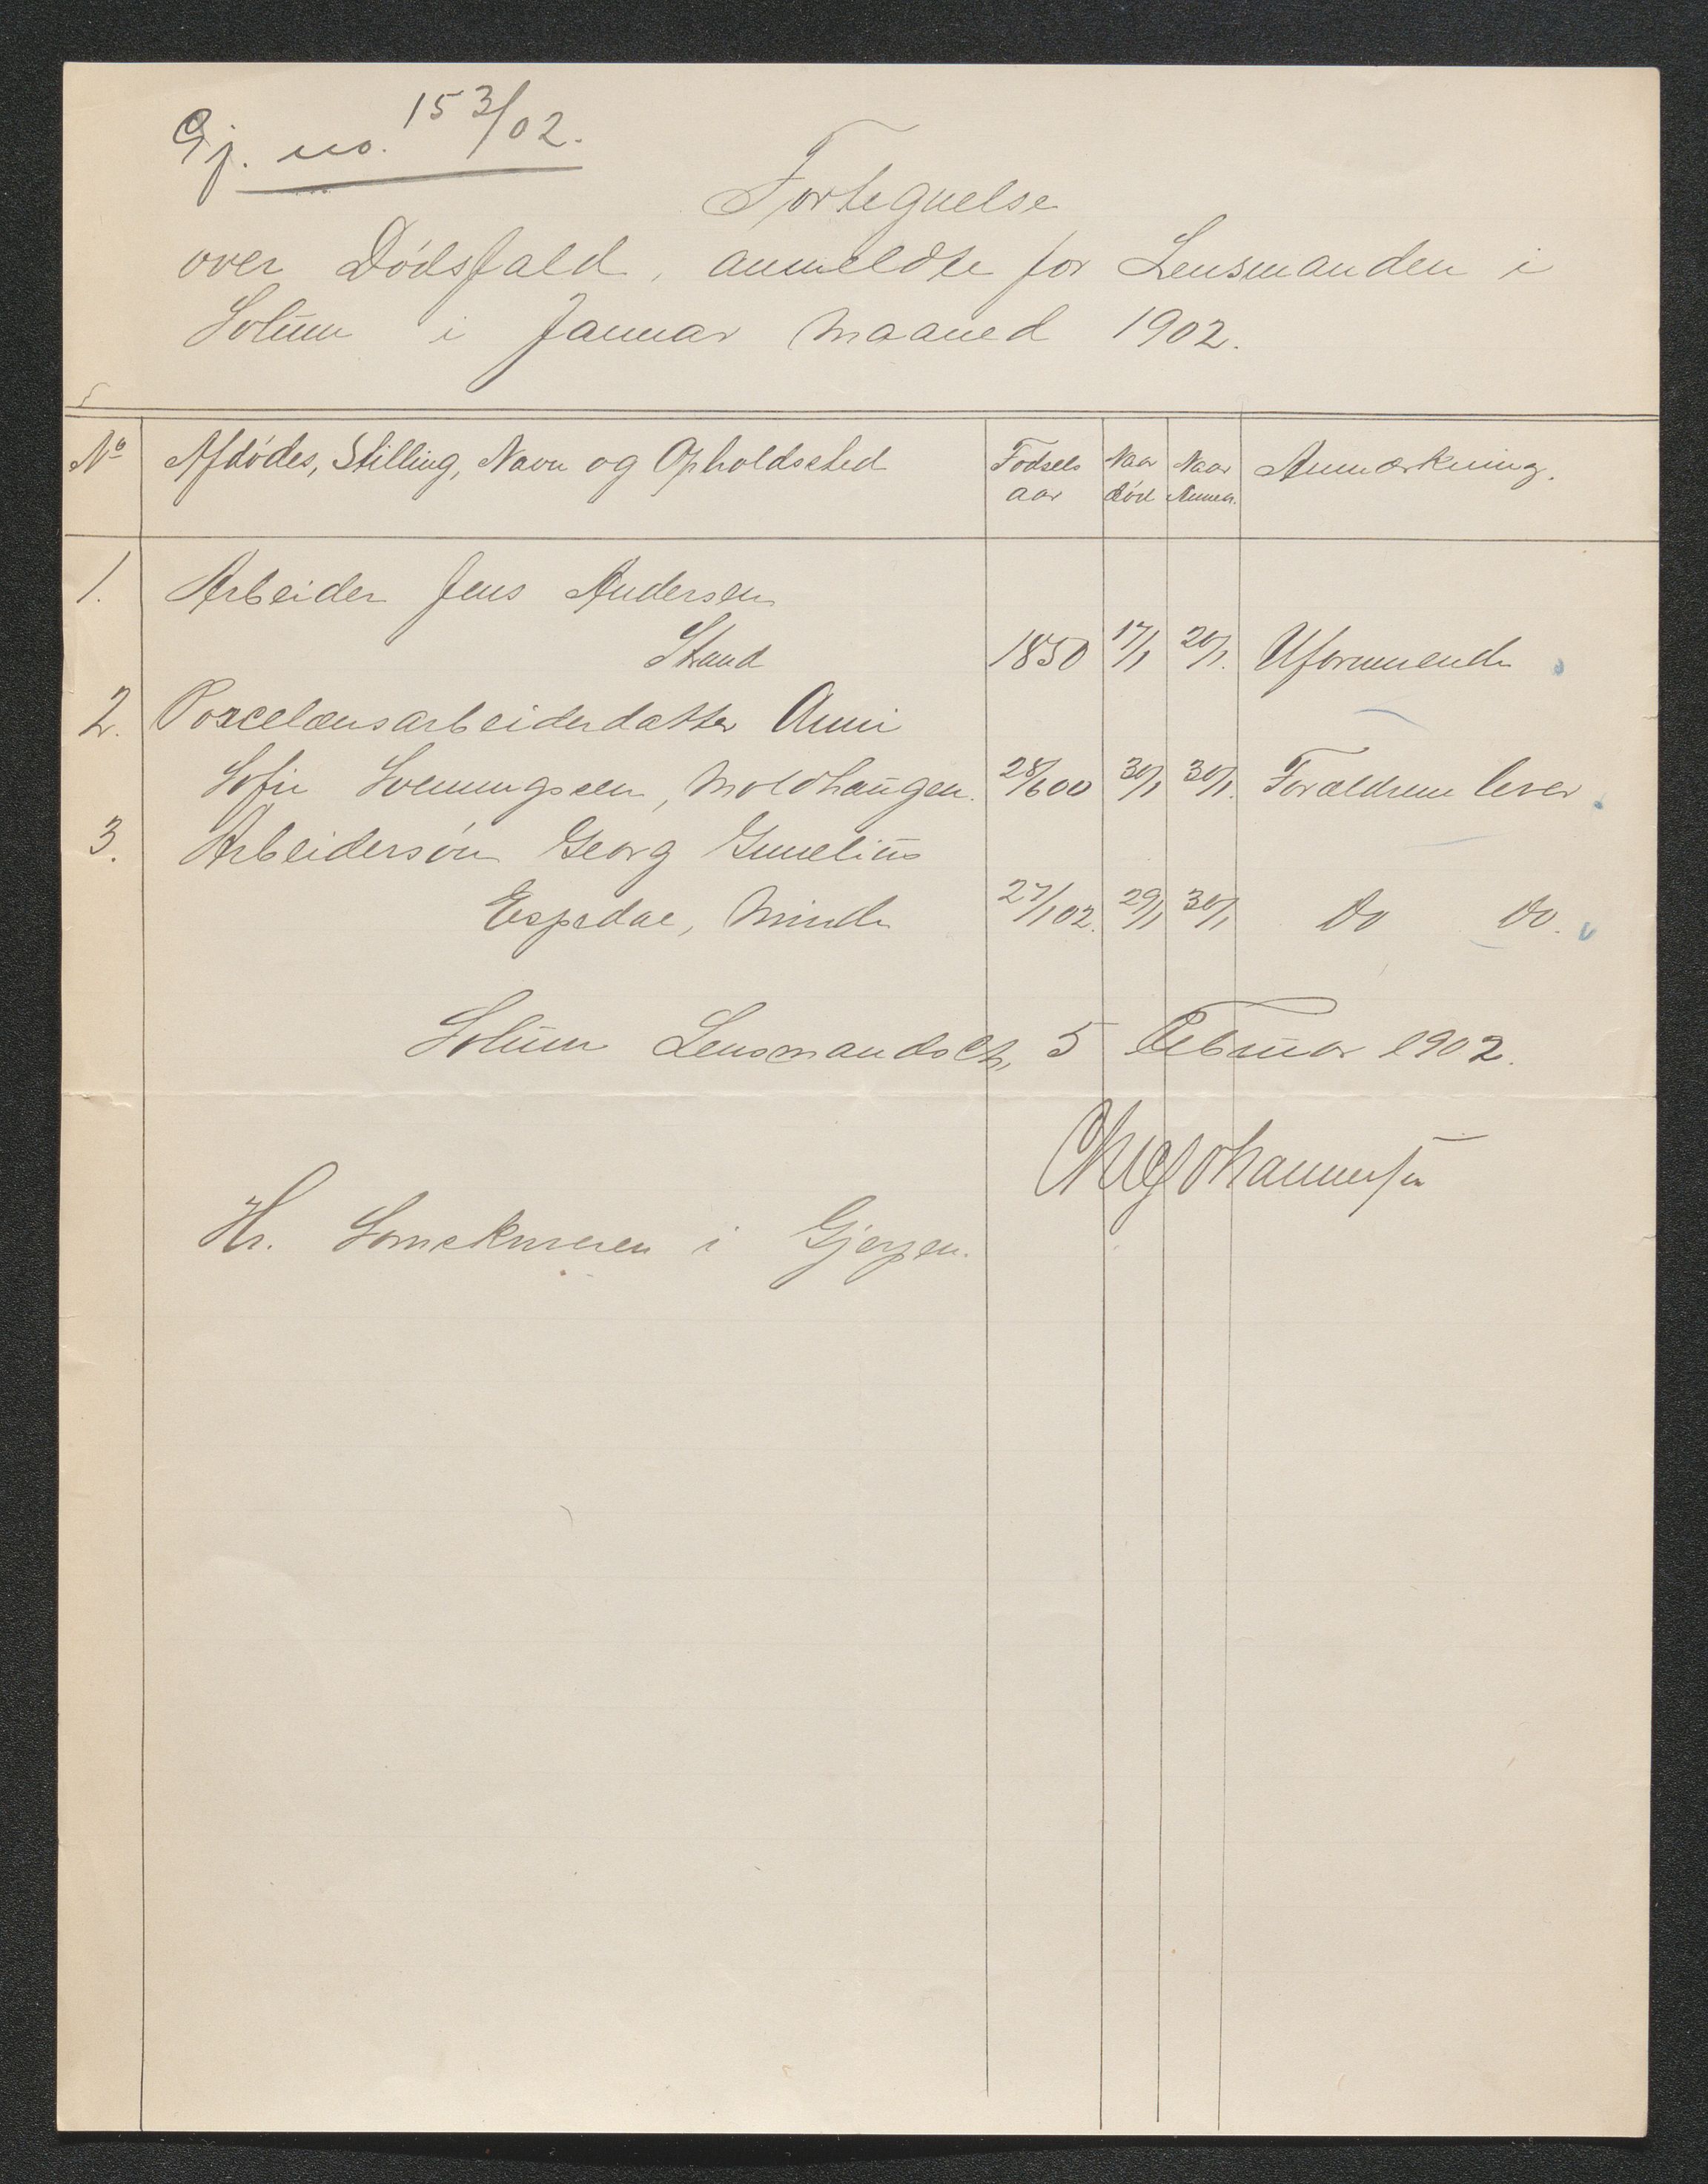 Gj. no. 153/02.
Fortegnelse
over Dødsfald, anmeldte for Lensmanden i
Solum i Januar Maaned 1902.
No Afdødes, Stilling, Navn og Opholdssted Fødsels aar Naar død Naar Anm. Anmærkning.
1. Arbeider Jens Andersen
Strand 1850 17/1 20/1. Uformuende
2. Porcelænsarbeiderdatter Anni
Sofie Svenningsen, Moldhaugen. 28/6 00 30/1 30/1. Forældrene lever.
3. Arbeidersøn Georg
Espedal, Minde 27/1 02. 29/1 30/1 Do Do.
Solum Lensmandsktr, 5 Februar 1902.
Johannessen
Hr. Sorenskriveren i Gjerpen.